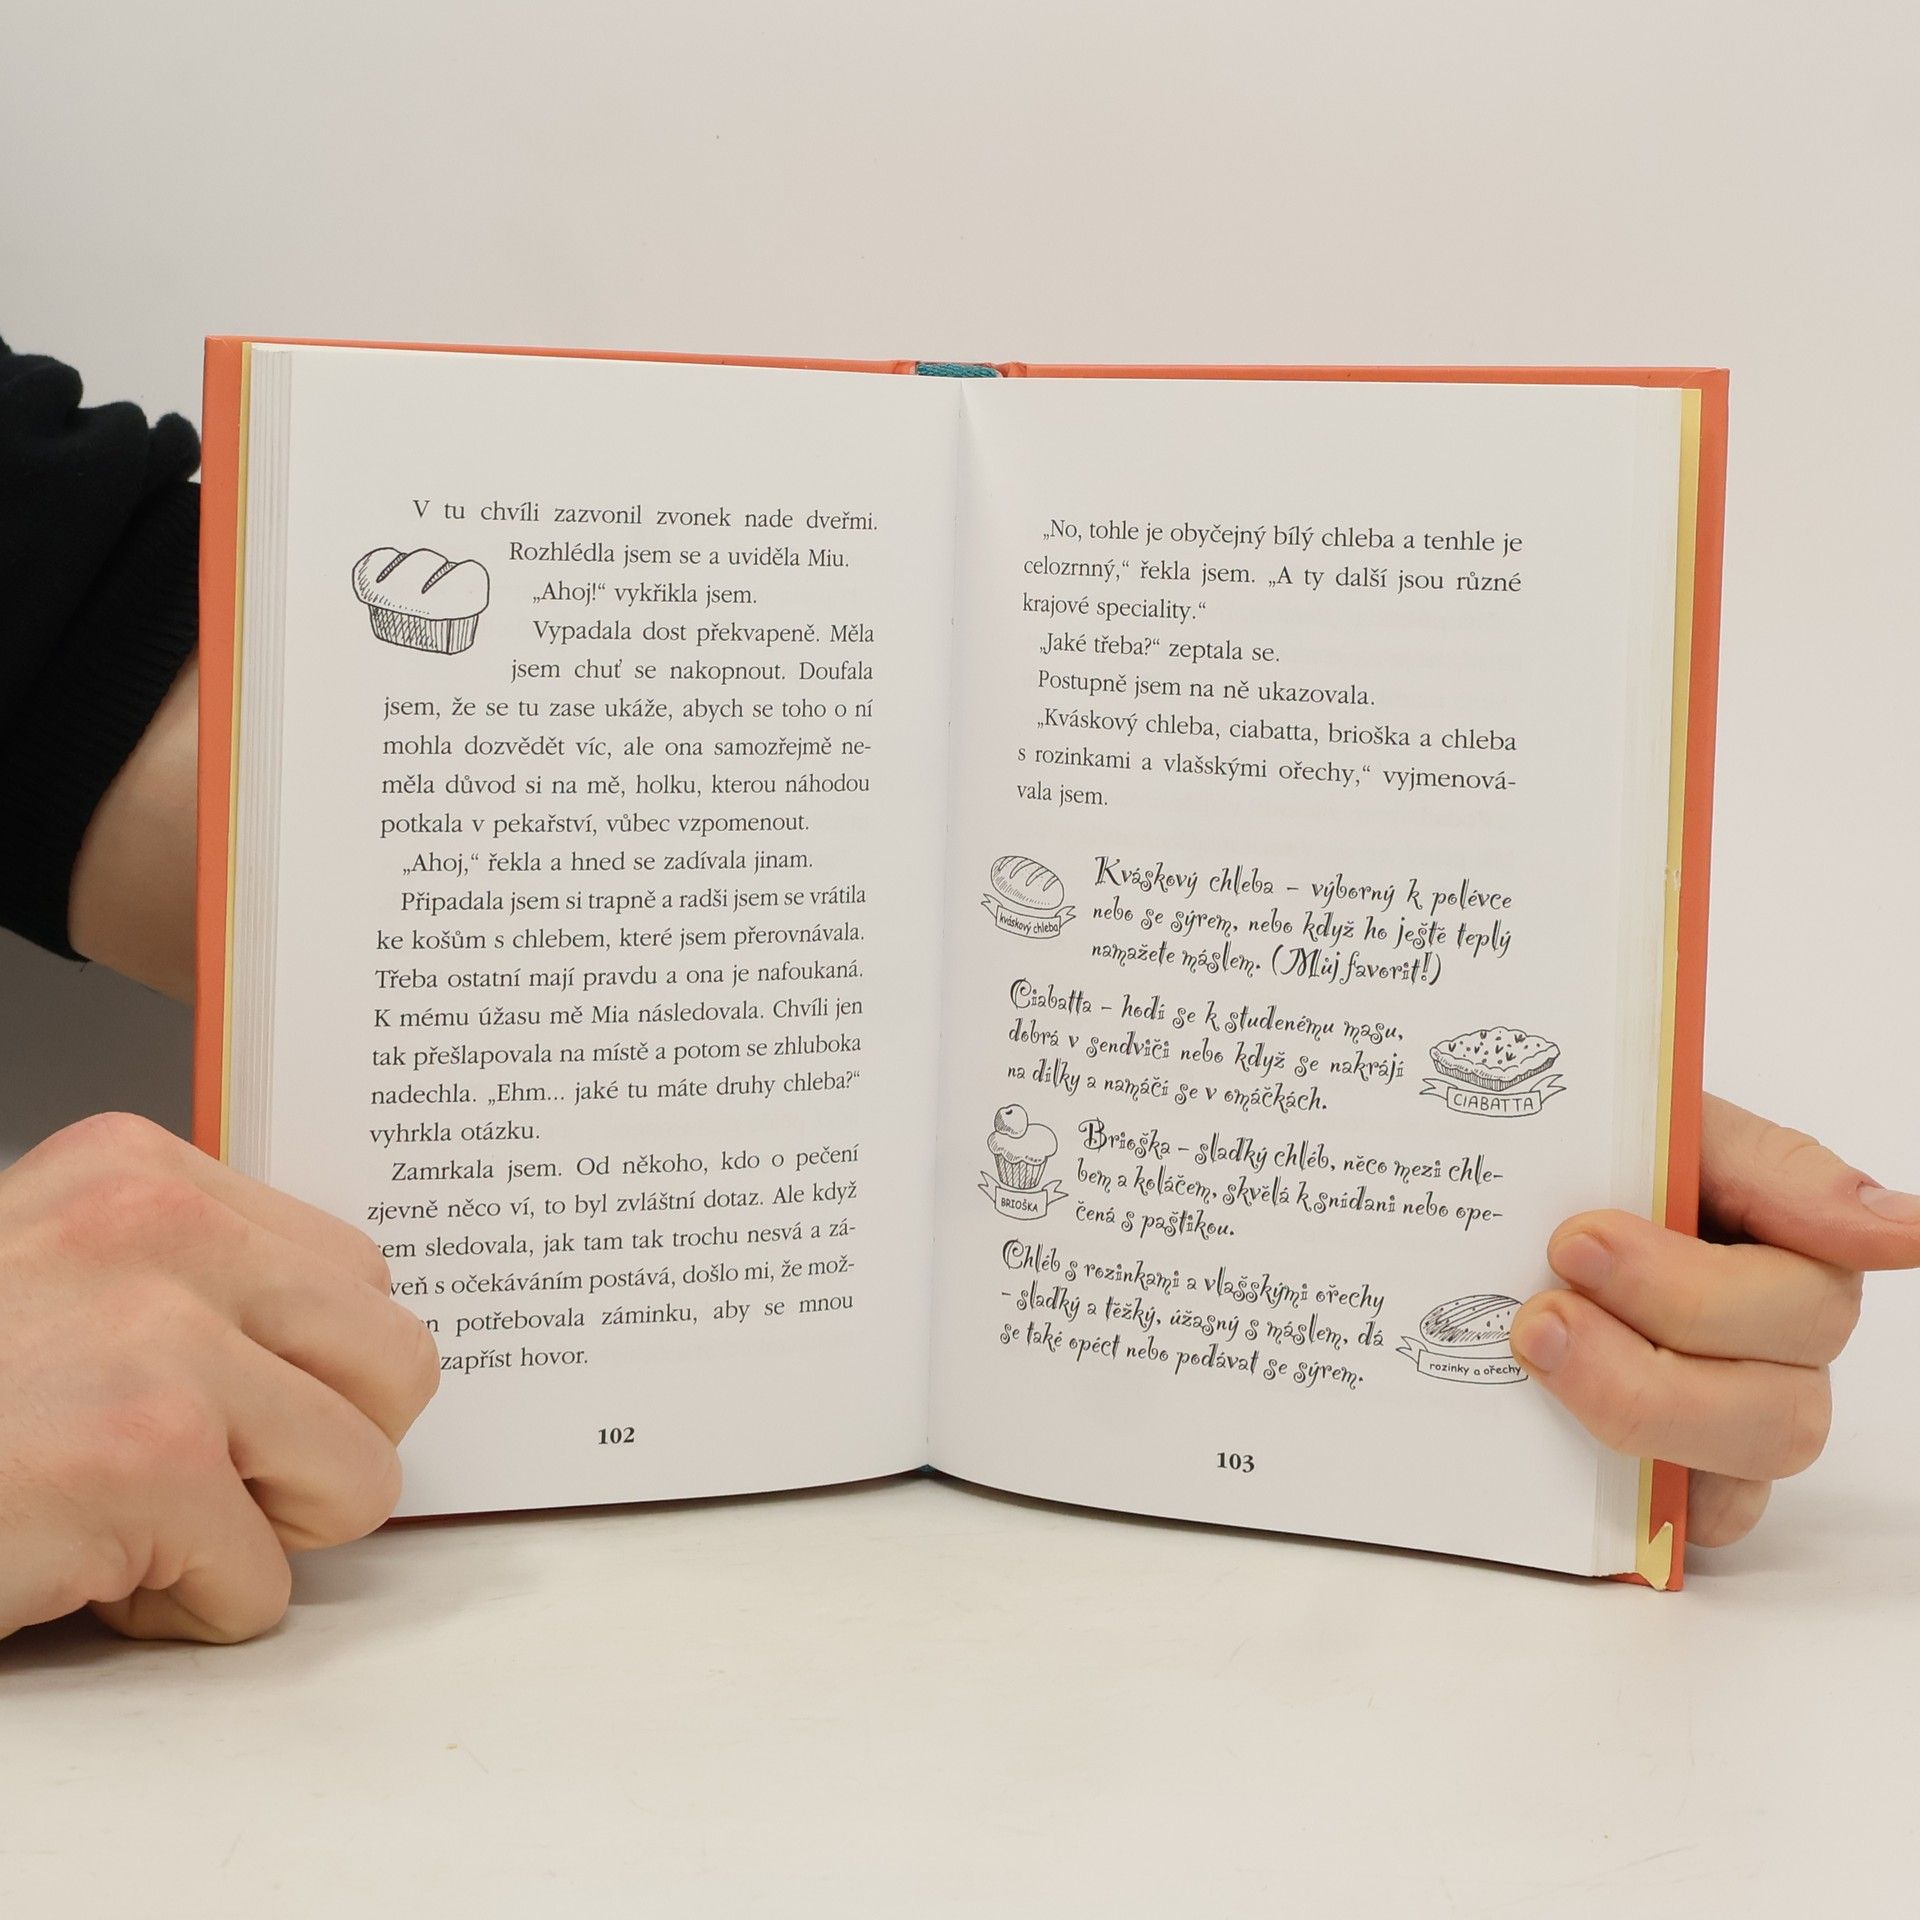 V tu chvíli zazvonil zvonek nade dveřmi.
Rozhlédla jsem se a uviděla Miu.
„Ahoj!“ vykřikla jsem.
Vypadala dost překvapeně. Měla
jsem chuť se nakopnout. Doufala
jsem, že se tu zase ukáže, abych se toho o ní
mohla dozvědět víc, ale ona samozřejmě ne-
měla důvod si na mě, holku, kterou náhodou
potkala v pekařství, vůbec vzpomenout.
„Ahoj,“ řekla a hned se zadívala jinam.
Připadala jsem si trapně a radši jsem se vrátila
ke košům s chlebem, které jsem přerovnávala.
Třeba ostatní mají pravdu a ona je nafoukaná.
K mému úžasu mě Mia následovala. Chvíli jen
tak přešlapovala na místě a potom se zhluboka
nadechla. „Ehm... jaké tu máte druhy chleba?“
vyhrkla otázku.
Zamrkala jsem. Od někoho, kdo o pečení
zjevně něco ví, to byl zvláštní dotaz. Ale když
sem sledovala, jak tam tak trochu nesvá a zá-
veň s očekáváním postává, došlo mi, že mož-
potřebovala záminku, aby se mnou
zapříst hovor.
102
„No, tohle je obyčejný bílý chleba a tenhle je
celozrnný,“ řekla jsem. „A ty další jsou různé
krajové speciality.“
„Jaké třeba?“ zeptala se.
Postupně jsem na ně ukazovala.
„Kváskový chleba, ciabatta, brioška a chleba
s rozinkami a vlašskými ořechy,“ vyjmenová-
vala jsem.
kváskový chleba
Kváskový chleba – výborný k polévce
nebo se sýrem, nebo když ho ještě teplý
namažete máslem. (Můj favorit!)
Ciabatta – hodí se k studenému masu,
dobrá v sendviči nebo když se nakrájí
na dílky a namáčí se v omáčkách.
CIABATTA
BRIOŠKA
Brioška – sladký chléb, něco mezi chle-
bem a koláčem, skvělá k snídani nebo ope-
čená s paštikou.
Chléb s rozinkami a vlašskými ořechy
– sladký a těžký, úžasný s máslem, dá
se také opéct nebo podávat se sýrem.
rozinky a ořechy
103